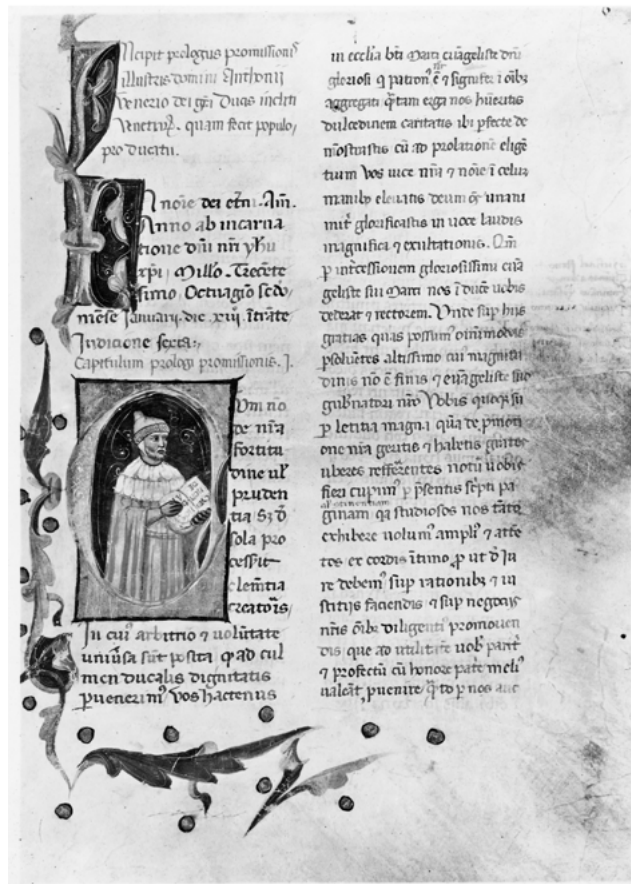 Incipit prologus promissionis
illustris domini Anthonii
Venerio dei gra Ducis incliti
Venetiarum. quam fecit populo
pro ducatu.
In noie dei etni. Am.
Anno ab incarna
tione dni nri yhu
xpi Millo. Trecente
simo Octuagio scdo
mese Januarij. die. xiij. itrate
Indicione sexta.
Capitulum prologi promissionis. I.
Cum no
de nra
fortitu
dine ul
pruden
tia sz d
sola pro
cesserit
clemtia
creatoris,
In cui arbitrio et volutate
univsa sut posita qd ad cul
men ducalis dignitatis
pvenerim, vos hactenus
in ecclia bti Marci evageliste dni
gloriosi et patron et signiferi
aggregati erga nos hueritis
dulcedinem caritatis ibi pfecte de
mostrastis cu ad prolatione elige
tium vos vice nra et noie i celum
manibus elevatis deum unani
mit glorificastis in voce laudis
magnifica et exultationis. Qm
p intcessionem gloriosissimi eva
geliste sui Marci nos i duce vobis
dederat et rectorem. Unde sup hiis
gratias quas possum omimodas
psolventes altissimo cui magnitu
dinis no e finis et evageliste suo
gubnatori nro Vobis quoqz
p letitia magna qua de pmoti
one nra geritis et habetis grates
uberes refferentes notu vobis
fieri cupim p psentis scpti pa
ginam qa studiosos nos
exhibere volum ampli et atte
tos ex cordis itimo, p ut d iu
re debem sup rationibz et iu
stitiis faciendis et sup negocijs
nris oibz diligenti promoven
dis que ad utilitate vob parit
et profectu cu honore pate meli
valeat pvenire, p nos